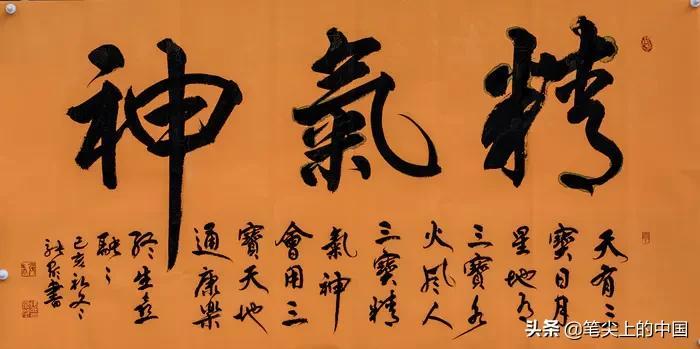 精氣神
天有三
寶日月
星地有
三寶水
火風人
三寶精
氣神
會用三
寶天地
通康樂
終生
融々
己亥初冬
書
头条 @笔尖上的中国